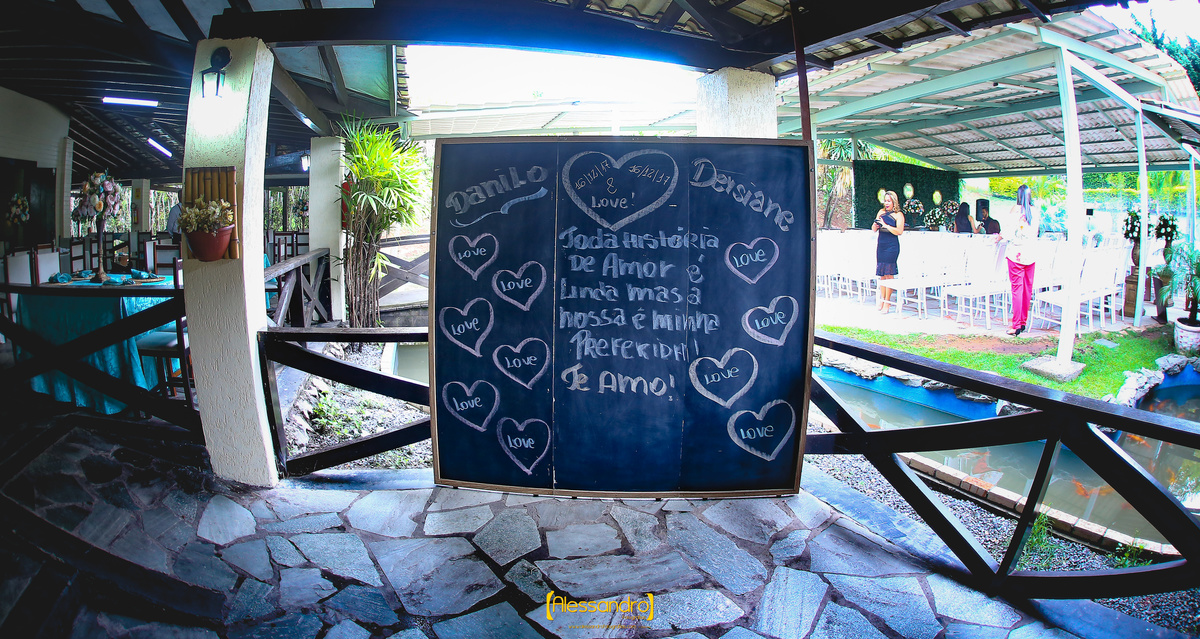 Danilo
16/12/17 16/12/17
&
Love!
Dersiane
Toda História
De Amor é
Linda mas a
nossa é minha
Preferida!
Te Amo!
Love
Love
Love
Love
Love
Love
Love
Love
Love
Love
[Alessandro]